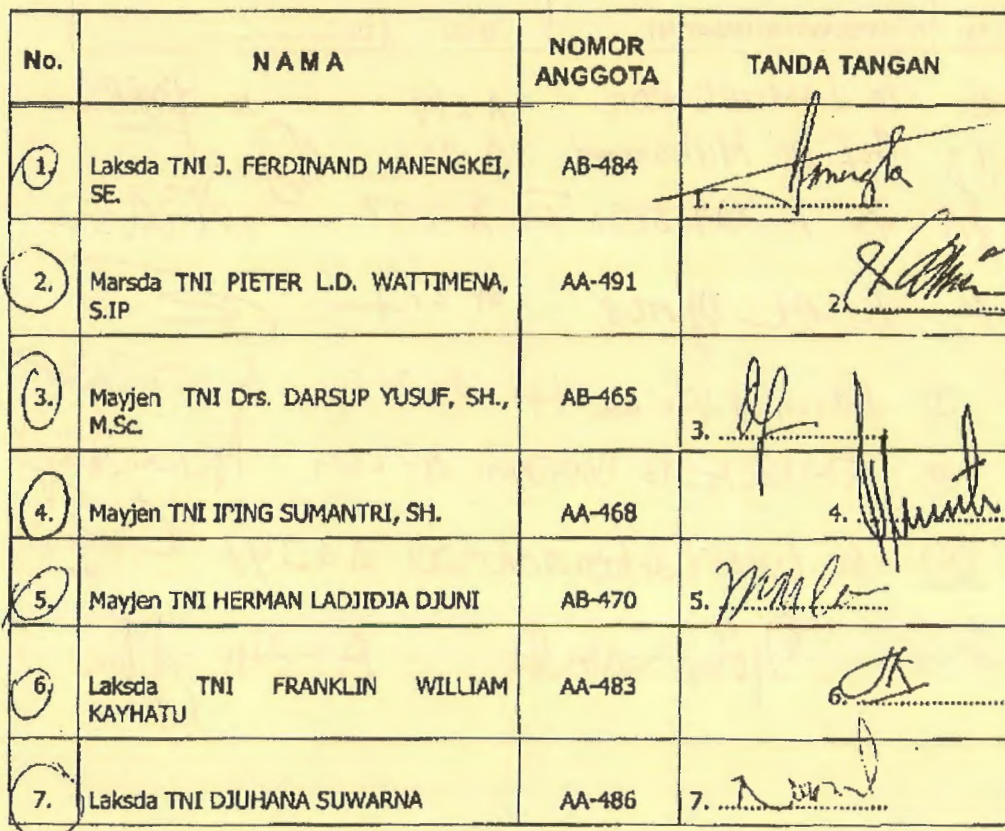 No. NAMA NOMOR ANGGOTA TANDA TANGAN
1. Laksda TNI J. FERDINAND MANENGKEI, SE. AB-484 1. ....................
2. Marsda TNI PIETER L.D. WATTIMENA, S.IP AA-491 2. ....................
3. Mayjen TNI Drs. DARSUP YUSUF, SH., M.Sc. AB-465 3. ....................
4. Mayjen TNI IPING SUMANTRI, SH. AA-468 4. ....................
5. Mayjen TNI HERMAN LADJIDJA DJUNI AB-470 5. ....................
6. Laksda TNI FRANKLIN WILLIAM KAYHATU AA-483 6. ....................
7. Laksda TNI DJUHANA SUWARNA AA-486 7. ....................